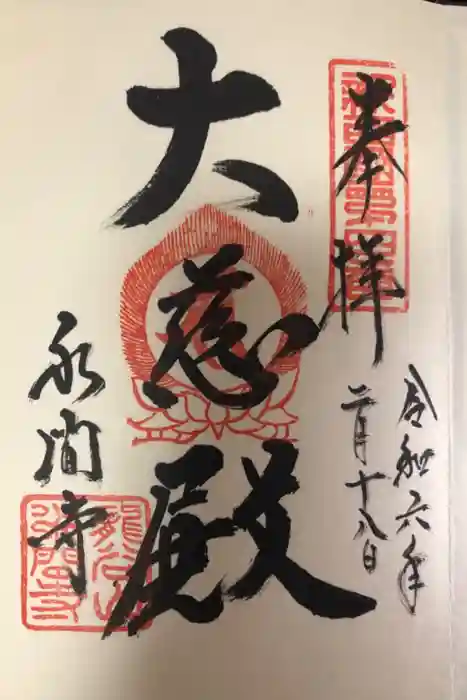 奉拝
令和六年
二月十八日
大慈殿
永間寺